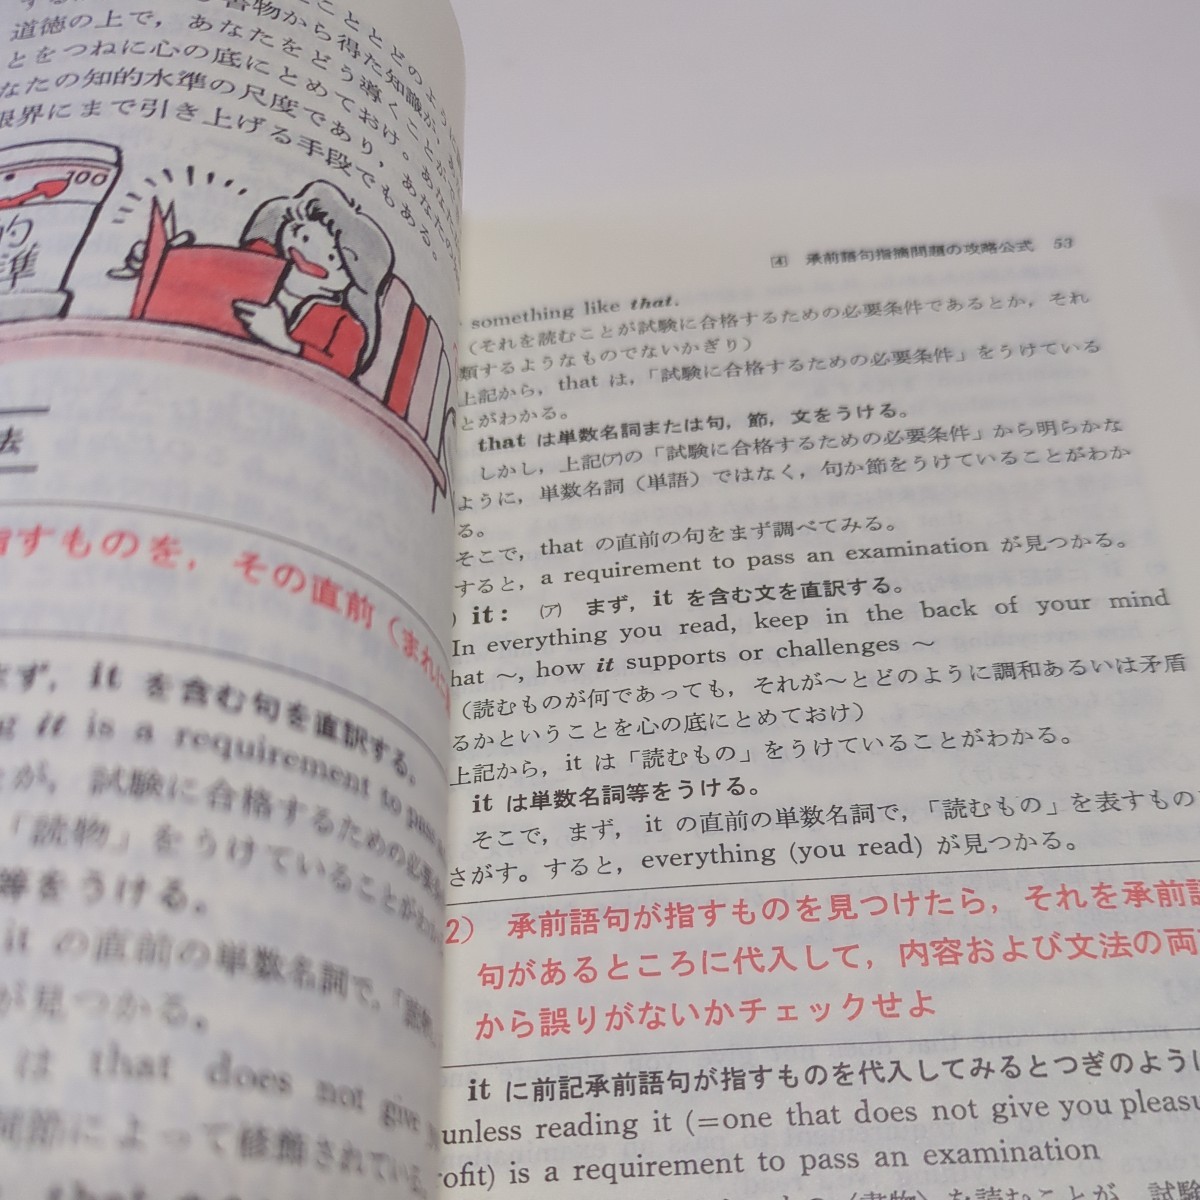 道徳の上で，あなたをどう導くことが
とをつねに心の底にとめておけ。あなた
なたの知的水準の尺度であり，あなたの
限界にまで引き上げる手段でもある。
100
的
準
法
指すものを，その直前（まれに
まず，it を含む句を直訳する。
it is a requirement to pass
とが，試験に合格するための必要
「読物」をうけていることがわ
等をうける。
it の直前の単数名詞で，「読
が見つかる。
は that does not give
関節によって修飾されている
4 承前語句指摘問題の攻略公式 53
something like that.
（それを読むことが試験に合格するための必要条件であるとか，それ
類するようなものでないかぎり）
上記から，that は，「試験に合格するための必要条件」をうけている
とがわかる。
that は単数名詞または句，節，文をうける。
しかし，上記(ア)の「試験に合格するための必要条件」から明らかな
ように，単数名詞（単語）ではなく，句か節をうけていることがわか
る。
そこで，that の直前の句をまず調べてみる。
すると，a requirement to pass an examination が見つかる。
) it： (ア) まず，it を含む文を直訳する。
In everything you read, keep in the back of your mind
hat ～, how it supports or challenges ～
（読むものが何であっても，それが～とどのように調和あるいは矛盾
るかということを心の底にとめておけ）
上記から，it は「読むもの」をうけていることがわかる。
it は単数名詞等をうける。
そこで，まず，it の直前の単数名詞で，「読むもの」を表すもの
さがす。すると，everything (you read) が見つかる。
2） 承前語句が指すものを見つけたら，それを承前語
句があるところに代入して，内容および文法の両
から誤りがないかチェックせよ
it に前記承前語句が指すものを代入してみるとつぎのように
unless reading it (=one that does not give you pleasu
rofit) is a requirement to pass an examination